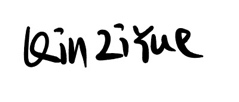 Qin ziyue